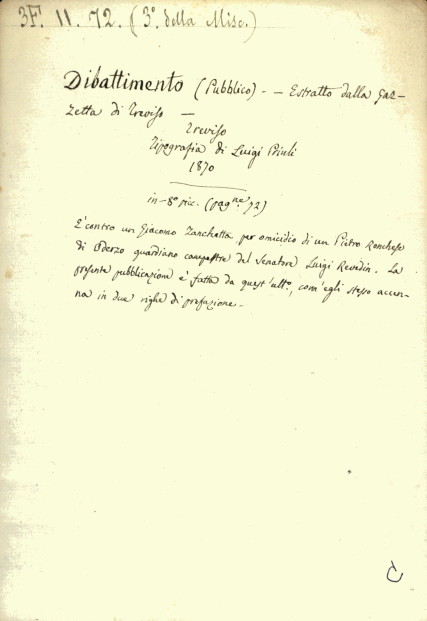 3F. 11. 72. (3º della Misc.)
Dibattimento (Pubblico) - - Estratto dalla Gaz-
zetta di Treviso —
Treviso
Tipografia di Luigi Priuli
1870
in-8º pic. (pagne 72)
E' contro un Giacomo Zanchetta per omicidio di un Pietro Ronchese
di Oderzo guardiano campestre del Senatore Luigi Revedin. La
presente pubblicazione è fatta da quest'ultº, com'egli stesso accen-
na in due righe di prefazione.